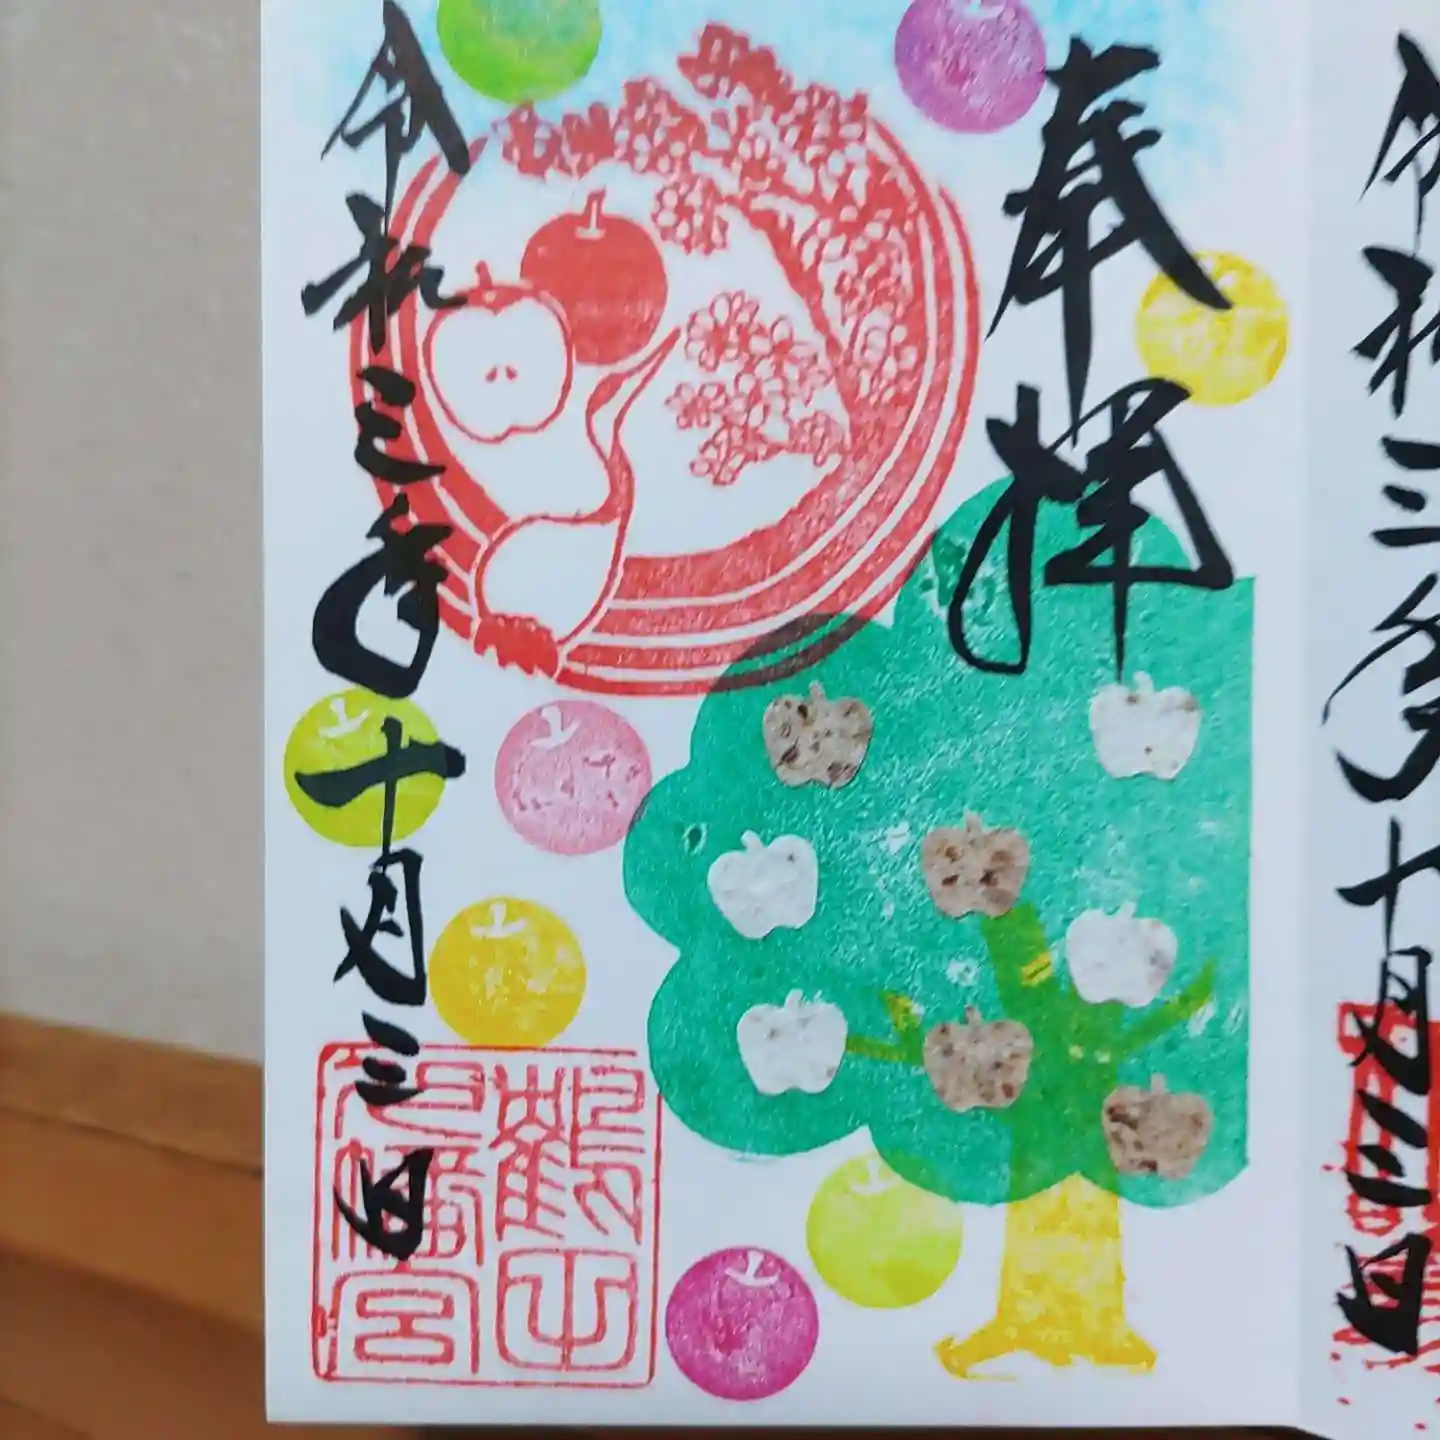 奉拝
令和三年十月三日
鶴山
八幡宮
令和三年十月三日